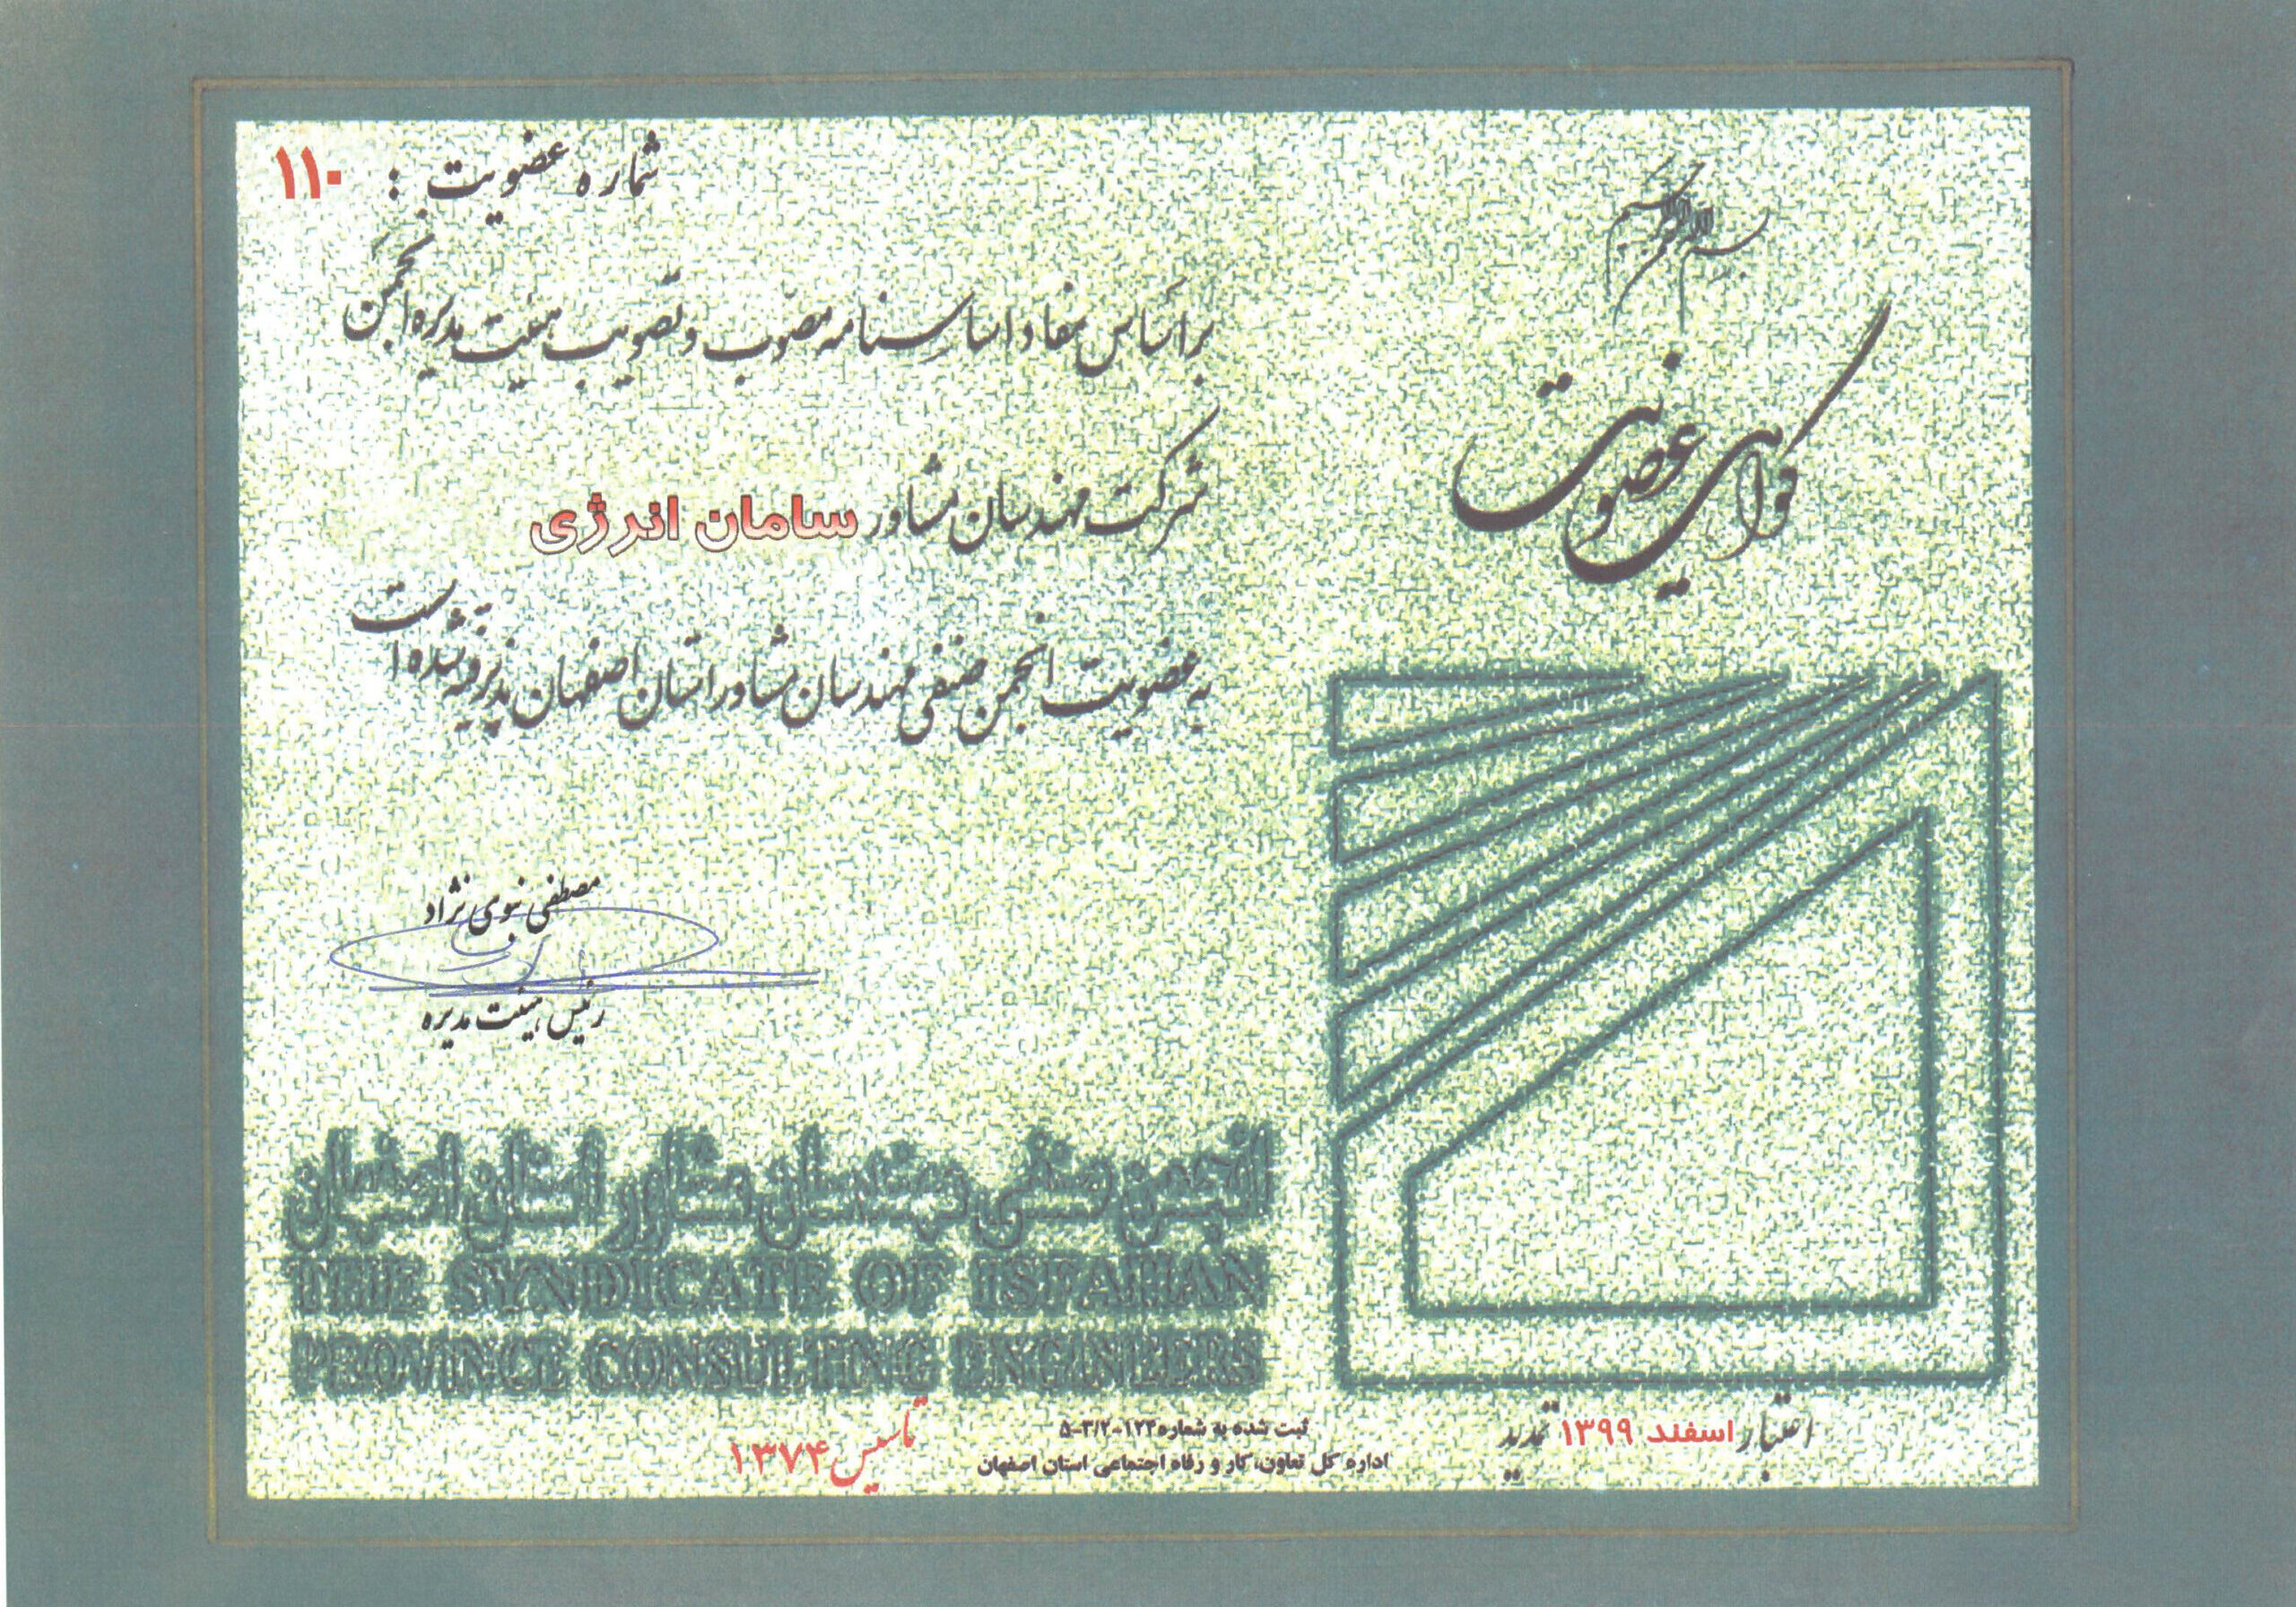 بسم الله الرحمن الرحیم
گواهی عضویت
شماره عضویت : ۱۱۰
براساس مفاد اساسنامه مصوب و تصویب هیئت مدیره انجمن
شرکت مهندسان مشاور سامان انرژی
به عضویت انجمن صنفی مهندسان مشاور استان اصفهان پذیرفته شده است
مصطفی نبوی نژاد
رئیس هیئت مدیره
انجمن صنفی مهندسان مشاور استان اصفهان
THE SYNDICATE OF ISFAHAN
PROVINCE CONSULTING ENGINEERS
تاسیس ۱۳۷۴
ثبت شده به شماره ۱۲۴-۵-۳/۲
اداره کل تعاون، کار و رفاه اجتماعی استان اصفهان
اعتبار اسفند ۱۳۹۹ تمدید